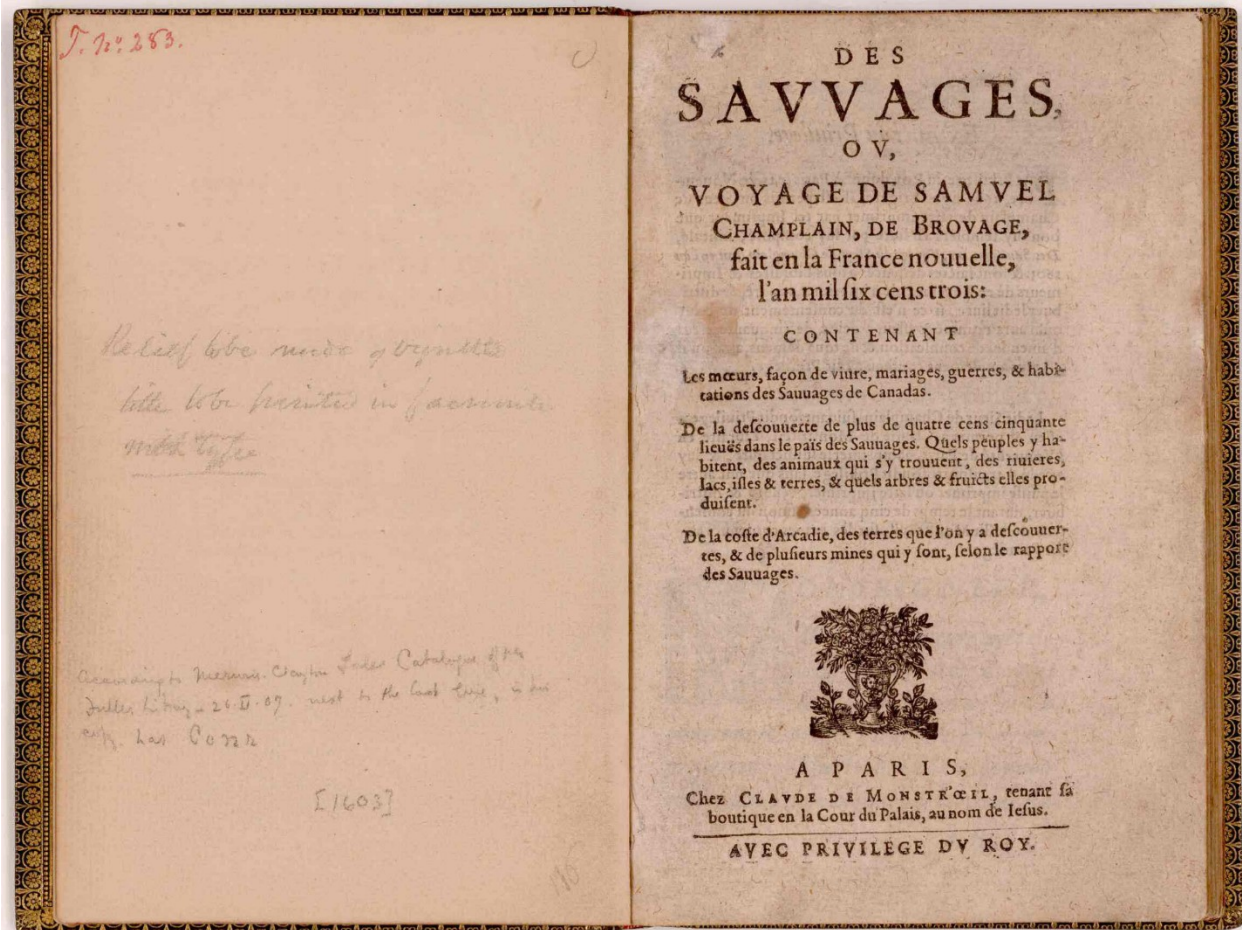 T. No. 283.
Relief to be made of vignette
title to be printed in facsimile
with type
According to
Catalogue of
26.II.07. next to the last line, in
copy has
[1603]
DES
SAVVAGES,
OV,
VOYAGE DE SAMVEL
CHAMPLAIN, DE BROVAGE,
fait en la France nouuelle,
l'an mil ſix cens trois:
CONTENANT
Les mœurs, façon de viure, mariages, guerres, & habi-
tations des Sauuages de Canadas.
De la deſcouuerte de plus de quatre cens cinquante
lieuës dans le païs des Sauuages. Quels peuples y ha-
bitent, des animaux qui s'y trouuent, des riuieres,
lacs, iſles & terres, & quels arbres & fruicts elles pro-
duiſent.
De la coſte d'Arcadie, des terres que l'on y a deſcouuer-
tes, & de pluſieurs mines qui y ſont, ſelon le rapport
des Sauuages.
A PARIS,
Chez CLAVDE DE MONSTR'œIL, tenant ſa
boutique en la Cour du Palais, au nom de Ieſus.
AVEC PRIVILEGE DV ROY.